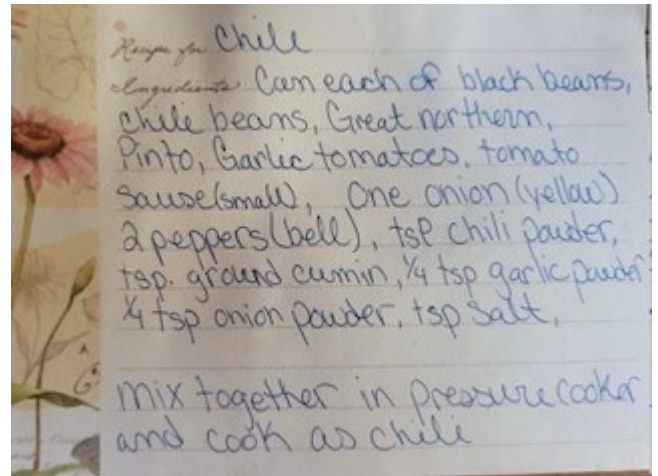 Recipe for Chile
Ingredients Can each of black beans,
chile beans, Great northern,
Pinto, Garlic tomatoes, tomato
sause(small), One onion (yellow)
2 peppers (bell), tsp chili powder,
tsp. ground cumin, 1/4 tsp garlic powder
1/4 tsp onion powder, tsp salt,
mix together in pressure cooker
and cook as chili